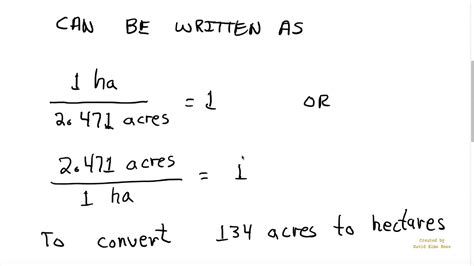 CAN BE WRITTEN AS
1 ha
2.471 acres
= 1
OR
2.471 acres
1 ha
= 1
To convert 134 acres to hectares
Created by